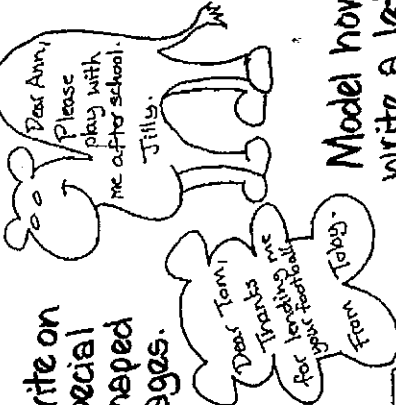 rite on
pecial
haped
ages.
Dear Ann,
Please
play with
me after school.
Jilly.
Dear Tom,
Thanks
for lending me
your football.
From Toby.
Model how
write a let